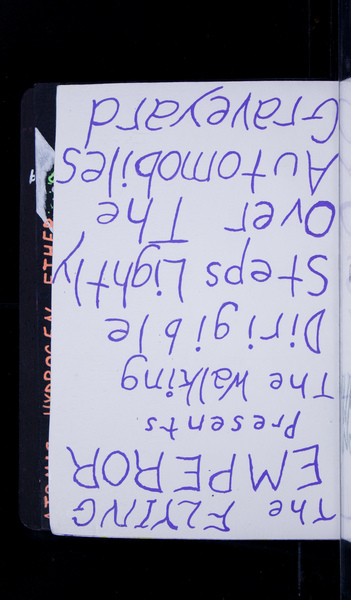 The FLYING
EMPEROR
Presents
The Walking
Dirigible
Steps Lightly
Over The
Automobiles
Graveyard
HYDROGEN ETHER